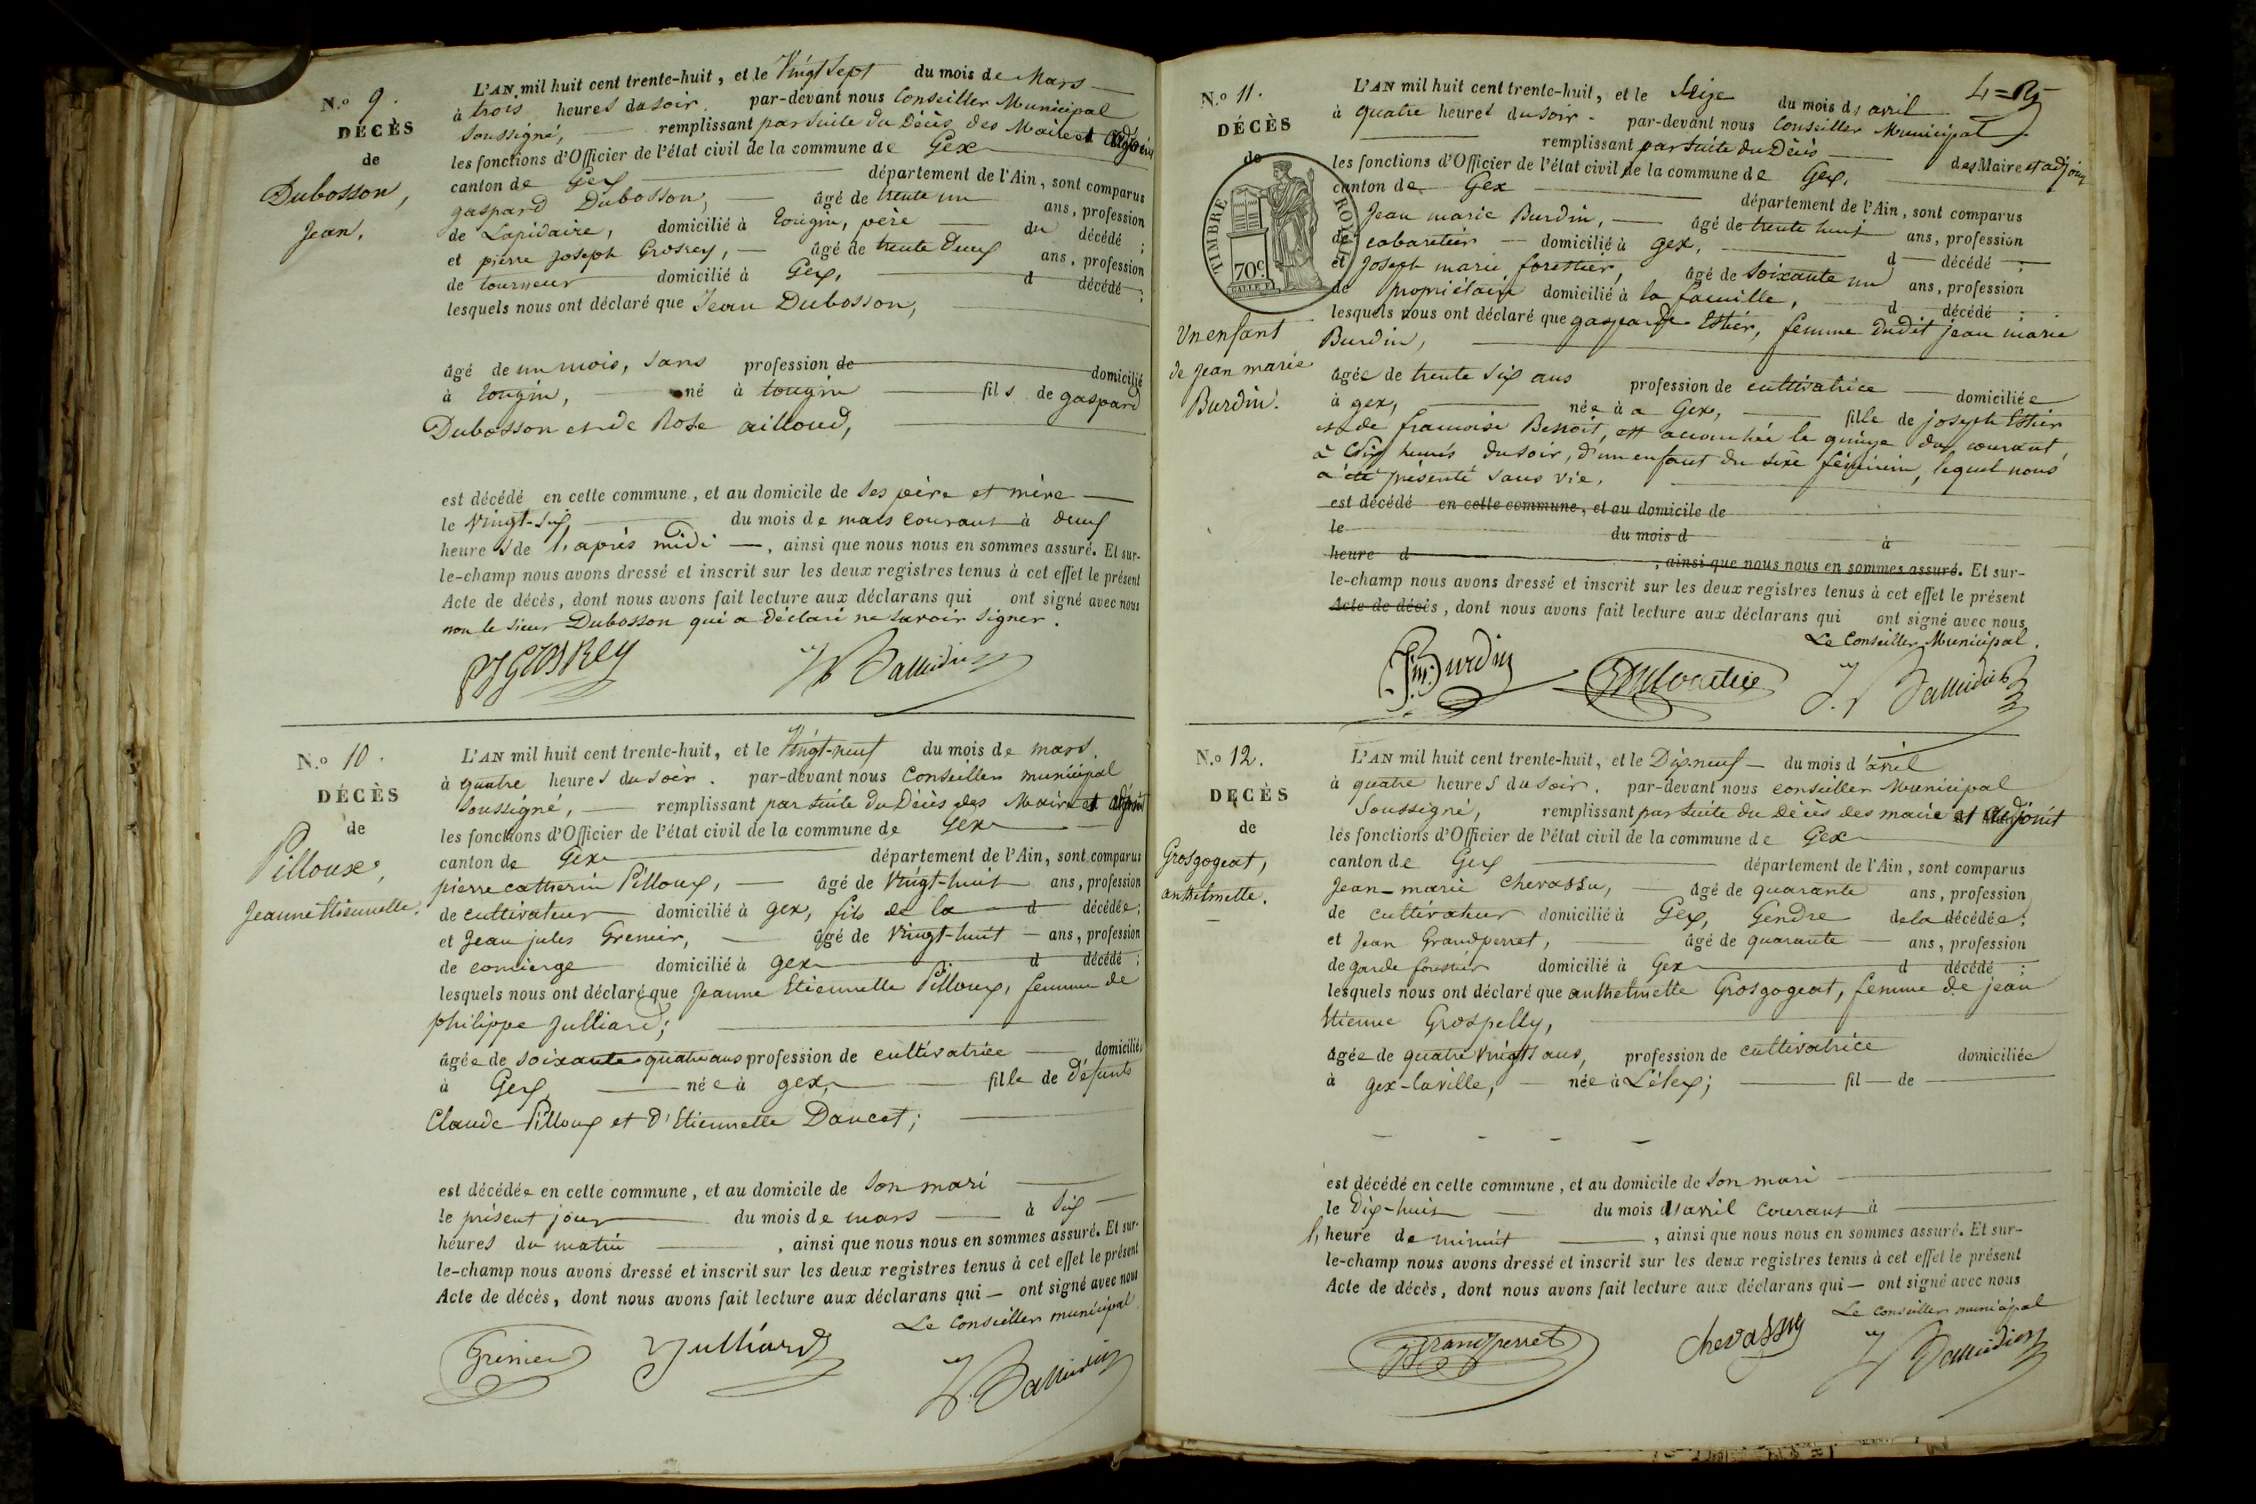 N.o 9.
DÉCÈS
de
Dubosson,
Jean.
L'AN mil huit cent trente-huit, et le Vingt Sept du mois de Mars
à trois heures du soir. par-devant nous Conseiller Municipal
soussigné, remplissant par suite du Décès des Maire et adjoint
les fonctions d'Officier de l'état civil de la commune de Gex
canton de Gex département de l'Ain, sont comparus
gaspard Dubosson, âgé de trente un ans, profession
de Lapidaire, domicilié à tougin, père du décédé ;
et pierre joseph Grosrey, âgé de trente Deux ans, profession
de tourneur domicilié à Gex, d décédé ;
lesquels nous ont déclaré que Jean Dubosson,
âgé de un mois, sans profession de domicilié
à tougin, né à tougin fils de gaspard
Dubosson et de Rose ailloud,
est décédé en cette commune, et au domicile de ses père et mère
le Vingt-six, du mois de mars courant à deux
heures de l'après midi, ainsi que nous nous en sommes assuré. Et sur-
le-champ nous avons dressé et inscrit sur les deux registres tenus à cet effet le présent
Acte de décès, dont nous avons fait lecture aux déclarans qui ont signé avec nous
non le sieur Dubosson qui a déclaré ne savoir signer.
PJ GROSREY
N.o 10.
DÉCÈS
de
Pilloux,
Jeanne Etiennette.
L'AN mil huit cent trente-huit, et le Vingt-neuf du mois de mars
à quatre heures du soir. par-devant nous Conseiller municipal
soussigné, remplissant par suite du Décès des Maire et adjoint
les fonctions d'Officier de l'état civil de la commune de Gex
canton de Gex département de l'Ain, sont comparus
pierre catherin Pilloux, âgé de Vingt-huit ans, profession
de cultivateur domicilié à gex, fils de la d décédée ;
et Jean jules Grenier, âgé de Vingt-huit ans, profession
de concierge domicilié à gex d décédé ;
lesquels nous ont déclaré que Jeanne Etiennette Pilloux, femme de
philippe Julliard ;
âgée de soixante quatre ans profession de cultivatrice domiciliée
à Gex, née à gex, fille de défunts
Claude Pilloux et d'Etiennette Dancet ;
est décédée en cette commune, et au domicile de son mari
le présent jour du mois de mars à six
heures du matin, ainsi que nous nous en sommes assuré. Et sur-
le-champ nous avons dressé et inscrit sur les deux registres tenus à cet effet le présent
Acte de décès, dont nous avons fait lecture aux déclarans qui ont signé avec nous
Le Conseiller municipal
Grenier Julliard
N.o 11.
DÉCÈS
de
TIMBRE ROYAL
70c
Un enfant
de jean marie
Burdin.
L'AN mil huit cent trente-huit, et le Seize du mois d'avril
à quatre heures du soir. par-devant nous Conseiller Municipal
remplissant par suite du Décès des Maire et adjoint
les fonctions d'Officier de l'état civil de la commune de Gex,
canton de Gex département de l'Ain, sont comparus
Jean marie Burdin, âgé de trente huit ans, profession
de cabaretier domicilié à gex, d décédé ;
et Joseph marie forestier, âgé de soixante un ans, profession
de propriétaire domicilié à la faucille, d décédé ;
lesquels nous ont déclaré que gasparde Estier, femme dudit jean marie
Burdin,
âgée de trente six ans profession de cultivatrice domiciliée
à gex, née à a Gex, fille de joseph Estier
et de francoise Benoit, est accouchée le quinze du courant,
à six heures du soir, d'un enfant du sexe féminin, lequel nous
a été présenté sans vie.
est décédé en cette commune, et au domicile de
le du mois d à
heure d , ainsi que nous nous en sommes assuré. Et sur-
le-champ nous avons dressé et inscrit sur les deux registres tenus à cet effet le présent
Acte de décès, dont nous avons fait lecture aux déclarans qui ont signé avec nous
Le Conseiller Municipal.
J.m. Burdin
N.o 12.
DÉCÈS
de
Grosgogeat,
anthelmette.
L'AN mil huit cent trente-huit, et le Dix neuf du mois d'avril
à quatre heures du soir. par-devant nous conseiller Municipal
Soussigné, remplissant par suite du Décès des maire et adjoint
les fonctions d'Officier de l'état civil de la commune de Gex
canton de Gex département de l'Ain, sont comparus
Jean-marie Chevassu, âgé de quarante ans, profession
de cultivateur domicilié à Gex, Gendre de la décédée ;
et Jean Grandperret, âgé de quarante ans, profession
de garde forestier domicilié à Gex d décédé ;
lesquels nous ont déclaré que anthelmette Grosgogeat, femme de jean
Etienne Grospelly,
âgée de quatre vingts ans, profession de cultivatrice domiciliée
à gex-la ville, née à Lélex ; fil de
est décédé en cette commune, et au domicile de son mari
le Dix-huit du mois d'avril courant à
l'heure de minuit, ainsi que nous nous en sommes assuré. Et sur-
le-champ nous avons dressé et inscrit sur les deux registres tenus à cet effet le présent
Acte de décès, dont nous avons fait lecture aux déclarans qui ont signé avec nous
Le conseiller municipal
Grandperret Chevassu